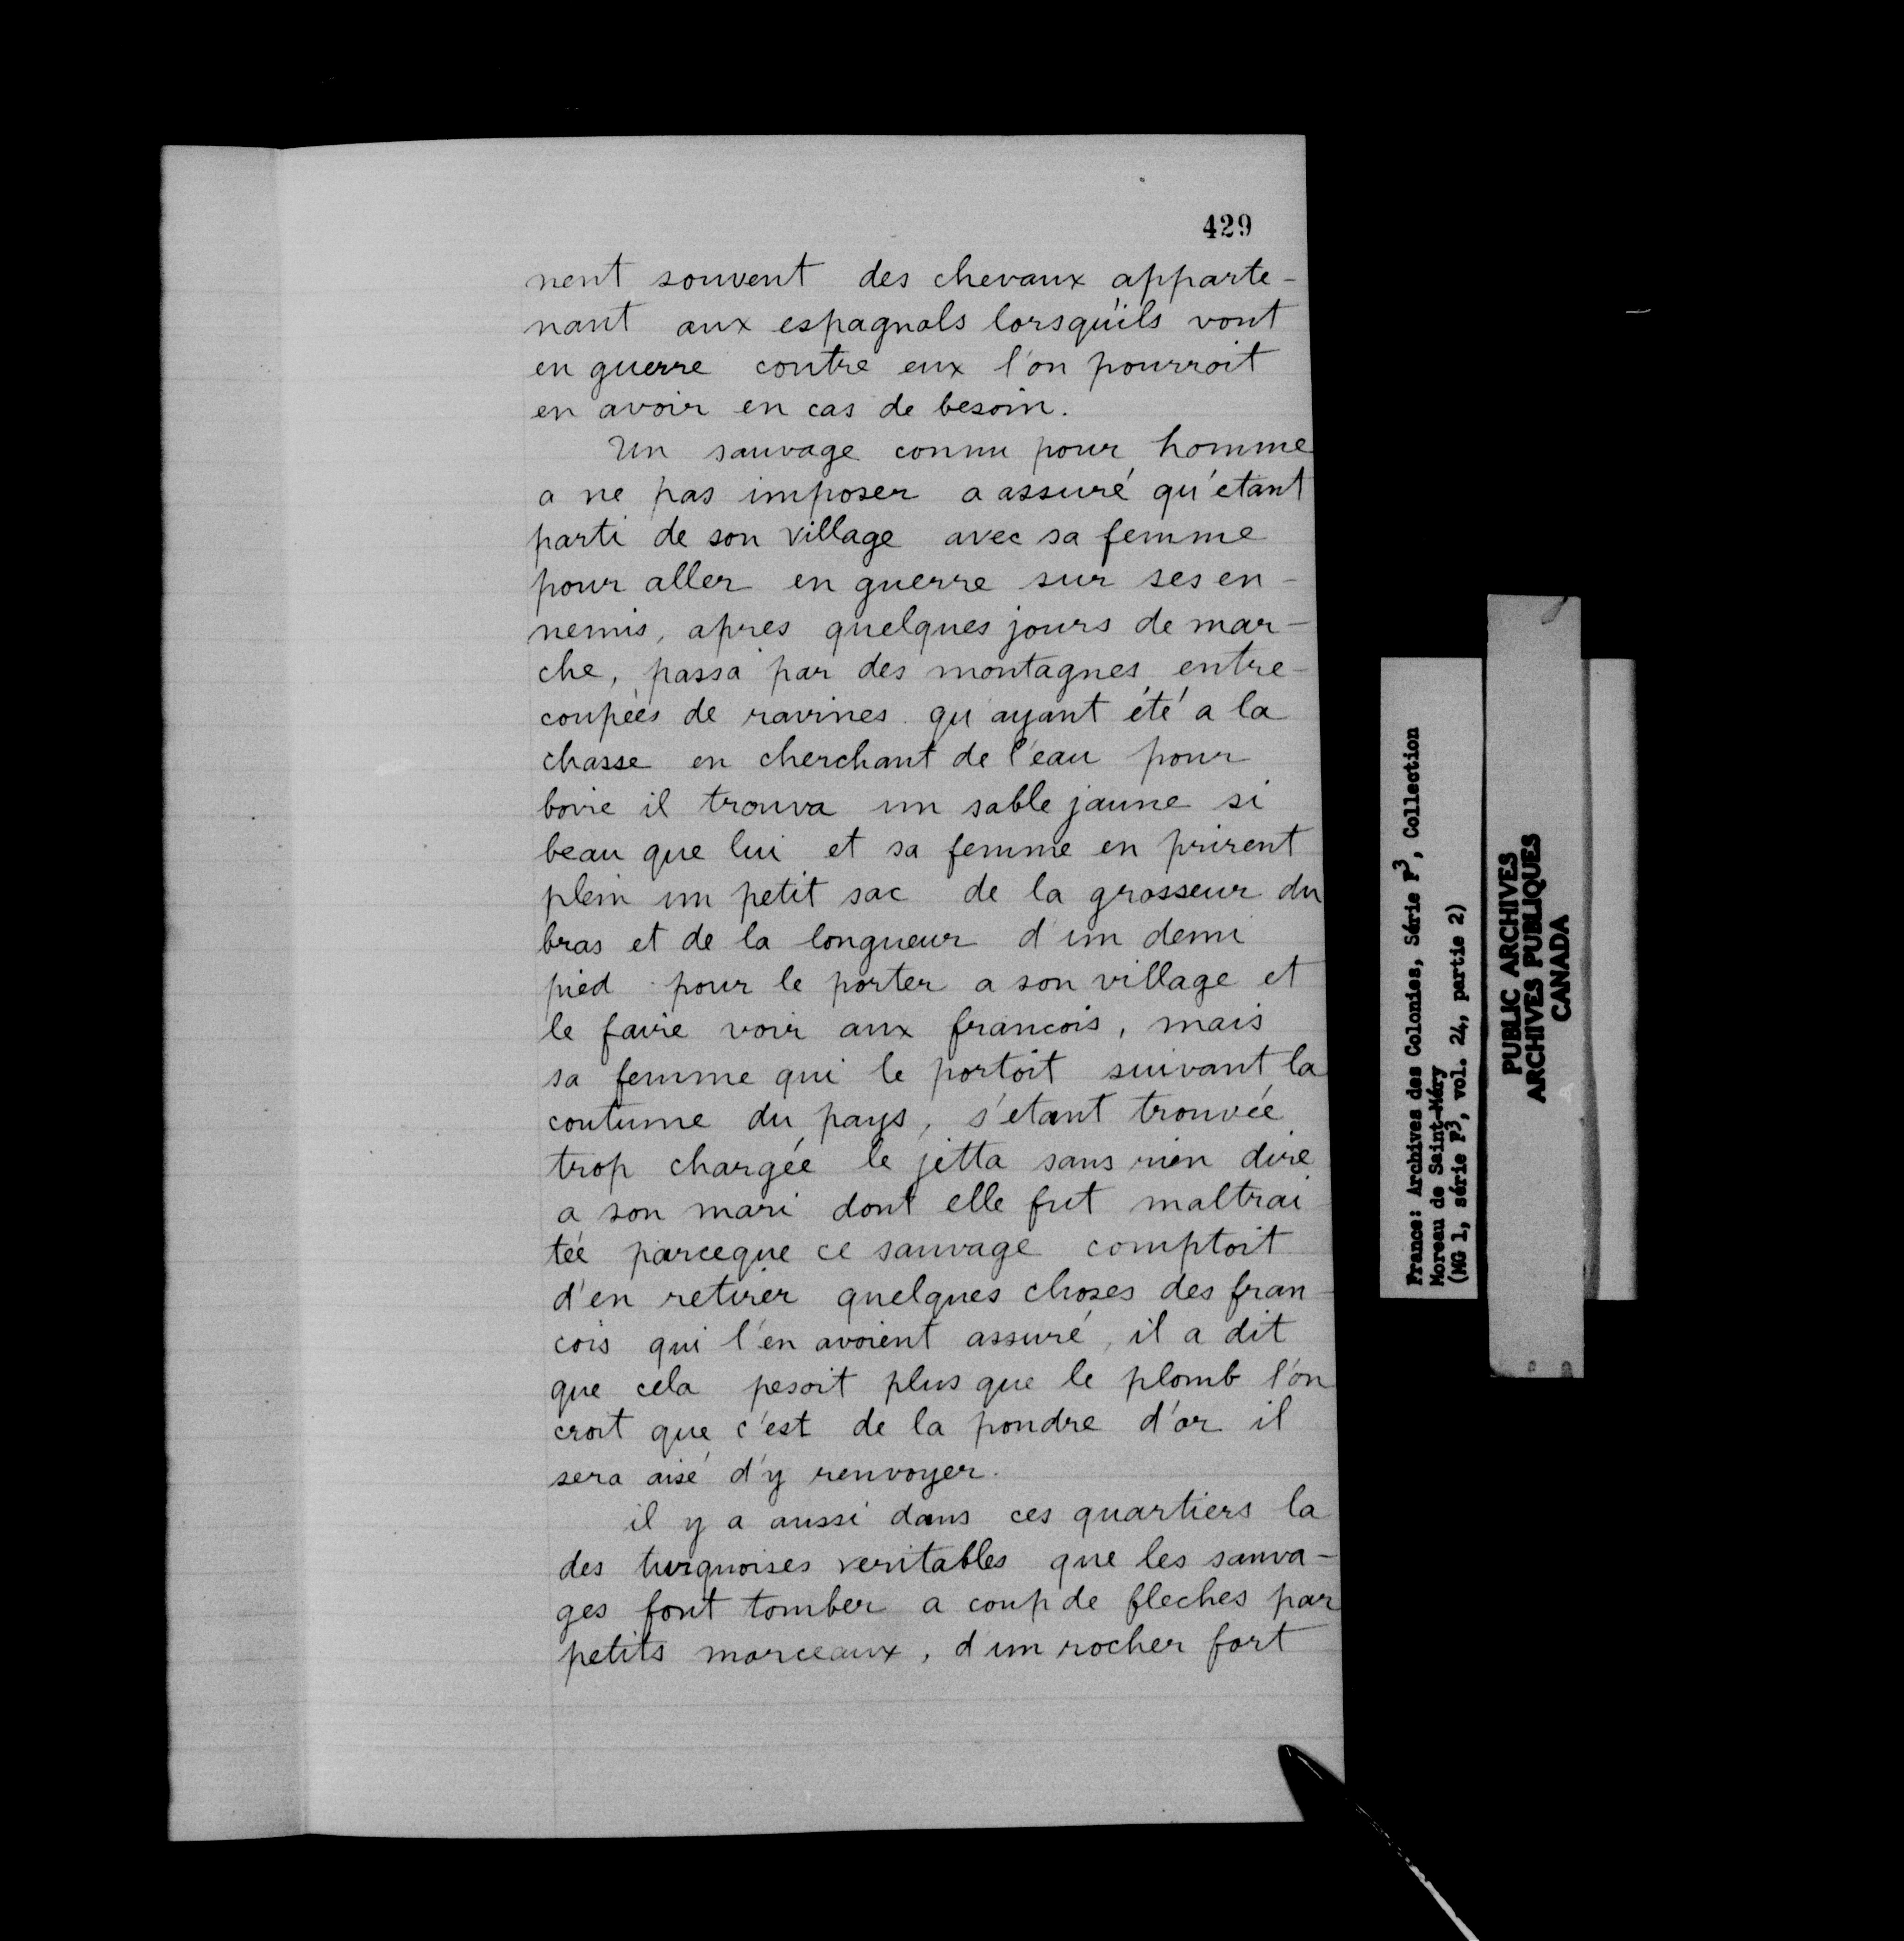 429
nent souvent des chevaux apparte-
nant aux espagnols lorsqu'ils vont
en guerre contre eux l'on pourroit
en avoir en cas de besoin.
Un sauvage connu pour homme
a ne pas imposer a assuré qu'etant
parti de son village avec sa femme
pour aller en guerre sur ses en-
nemis, apres quelques jours de mar-
che, passa par des montagnes entre-
coupées de ravines qu'ayant été a la
chasse en cherchant de l'eau pour
boire il trouva un sable jaune si
beau que lui et sa femme en prirent
plein un petit sac de la grosseur du
bras et de la longueur d'un demi
pied pour le porter a son village et
le faire voir aux francois, mais
sa femme qui le portoit suivant la
coutume du pays, s'etant trouvée
trop chargée le jetta sans rien dire
a son mari dont elle fut maltrai
tée parceque ce sauvage comptoit
d'en retirer quelques choses des fran-
cois qui l'en avoient assuré, il a dit
que cela pesoit plus que le plomb l'on
croit que c'est de la poudre d'or il
sera aisé d'y renvoyer.
il y a aussi dans ces quartiers la
des turquoises veritables que les sauva-
ges font tomber a coup de fleches par
petits morceaux, d'un rocher fort
France: Archives des Colonies, Série F3, Collection
Moreau de Saint-Méry
(MG 1, série F3, vol. 24, partie 2)
PUBLIC ARCHIVES
ARCHIVES PUBLIQUES
CANADA